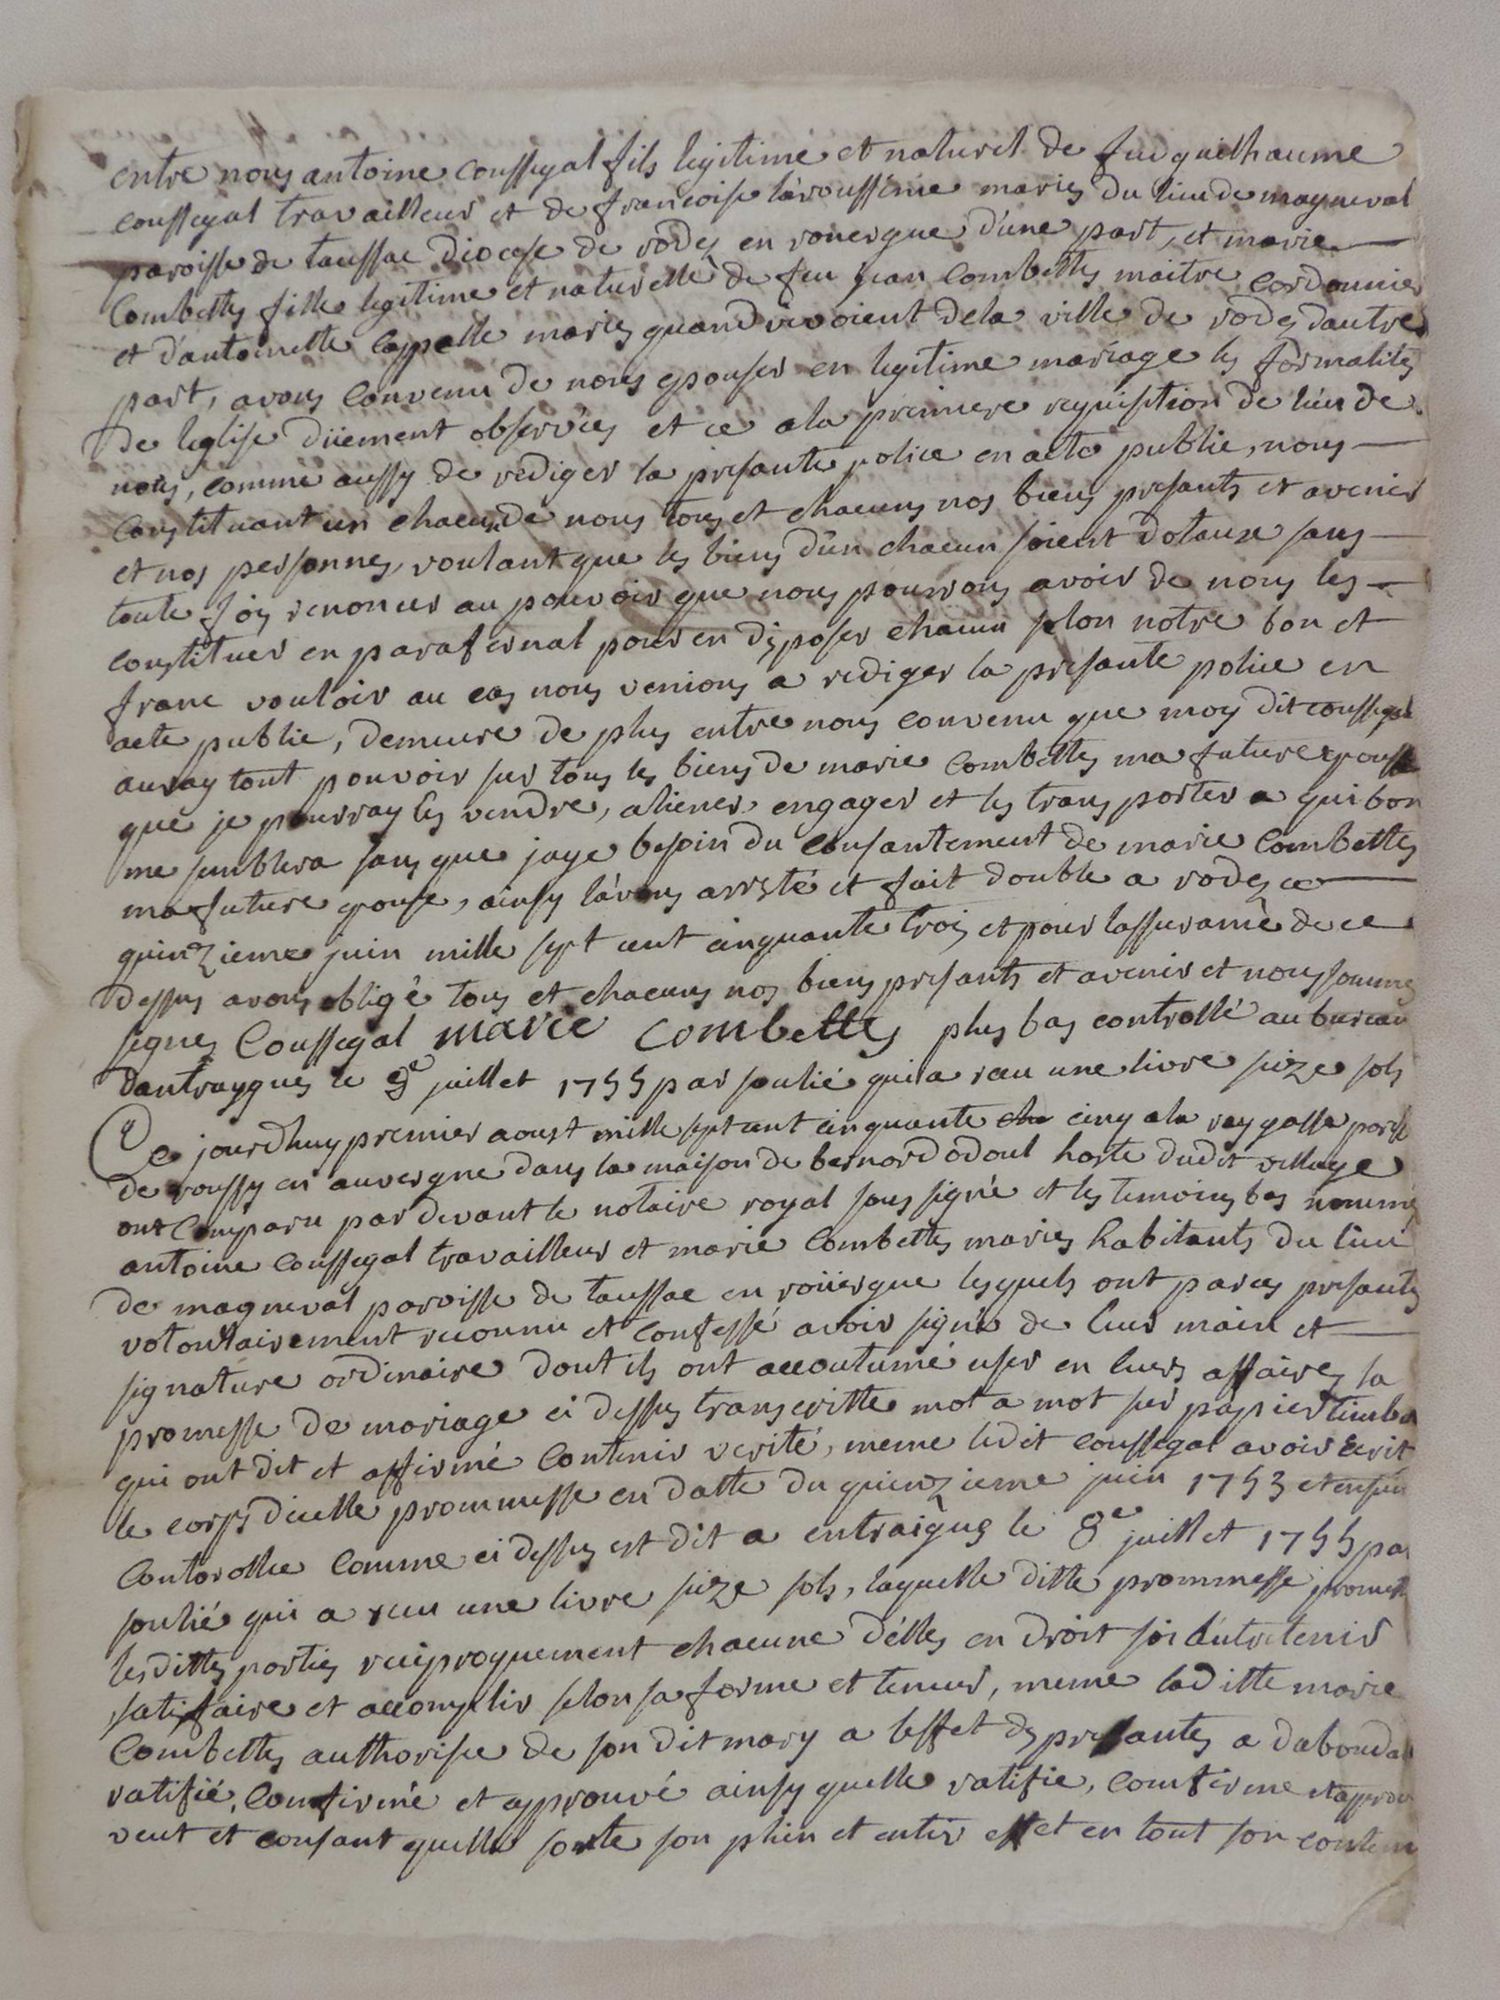 entre nous antoine coussegal fils legitime et naturel de feu guilhaume
coussegal travailleur et de francoise laroussinie maries du lieu de magneval
paroisse de taussac diocese de rodes en rouergue d'une part, et marie
Combettes fille legitime et naturelle de feu jean Combettes maitre Cordonnier
et d'antoinette Cappelle maries quand vivoient de la ville de rodes dautre
part, avons Convenu de nous epouser en legitime mariage les formalités
de leglise düement observées et ce a la premiere requisition de lün de
nous, comme aussy de rediger la presante police en acte public, nous
Constituant un chacun de nous tous et chacuns nos biens presants et avenir
et nos personnes, voulant que les biens d'ün chacun soient dotaux sans
toute fois renoncer au pouvoir que nous pourrons avoir de nous les
constituer en parafernal pour en disposer chacun selon notre bon et
franc vouloir au cas nous venions a rediger la presante police en
acte public, demeure de plus entre nous convenu que moy dit coussegal
auray tout pouvoir sur tous les biens de marie Combettes ma future epouse
que je pourray les vendre, aliener, engager et les transporter a qui bon
me semblera sans que jaye besoin du Consantement de marie Combettes
ma future epouse, ainsy lavons arresté et fait double a rodes ce
quinzieme juin mille sept cent cinquante trois et pour lassurance de ce
dessus avons obligé tous et chacuns nos biens presants et avenir et nous sommes
signes Coussegal marie combettes plus bas controllé au bureau
dantraygues le 8e juillet 1755 par soulié qui a reçu une livre seize sols
Ce jourdhuy premier aoust mille sept cent cinquante cinq a la raygasse paroisse
de roussy en auvergne dans la maison de bernard odoul hoste dudit village
ont Comparu par devant le notaire royal sous signé et les temoins bas nommés
antoine Coussegal travailleur et marie Combettes maries habitants du lieu
de magneval paroisse de taussac en roüergue lesquels ont par ces presantes
volontairement reconnu et Confessé avoir signé de leur main et
signature ordinaire dont ils ont accoutumé user en leurs affaires la
promesse de mariage ci dessus transcritte mot a mot sur papier timbré
qui ont dit et affirmé Contenir verité, meme ledit coussegal avoir Ecrit
le corps dicelle prommesse en datte du quinzieme juin 1753 et ensuite
Contorollee Comme ci dessus est dit a entraigues le 8e juillet 1755 par
soulié qui a reçu une livre seize sols, laquelle ditte prommesse promettent
les dittes parties reciproquement chacune d'elles en droit soi d'entretenir
satisfaire et accomplir selon sa forme et teneur, meme laditte marie
Combettes authorisée de son dit mary a leffet des presantes a dabondant
ratifié, Comfirmé et approuvé ainsy quelle ratifie, Comfirme et approuve
veut et consant quelle sorte son plein et entier effet en tout son contenu